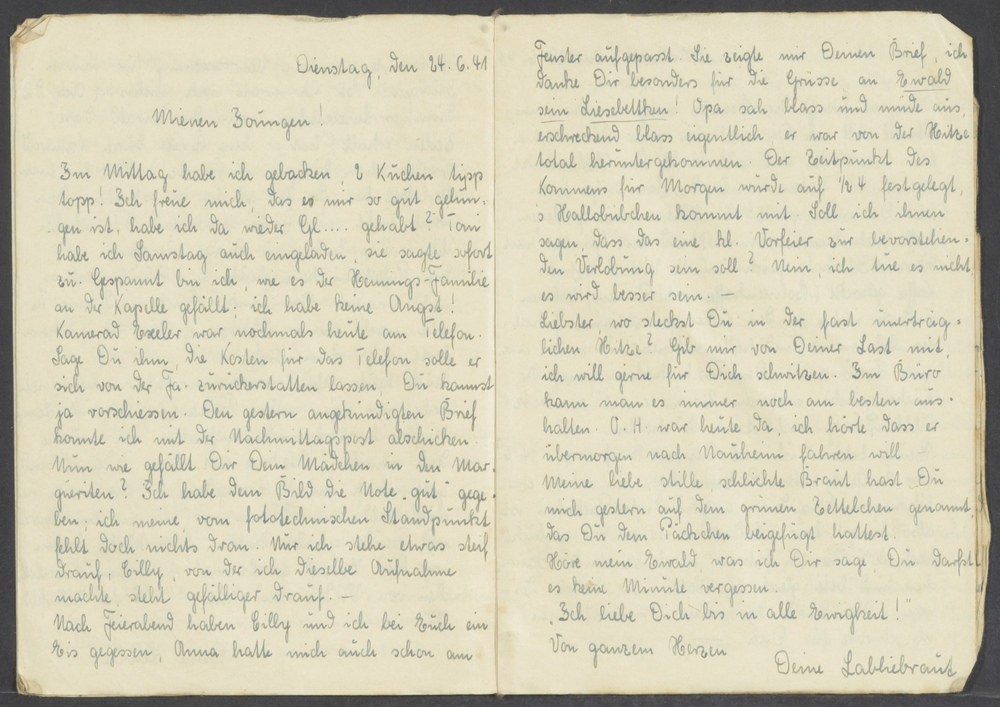 Dienstag, den 24.6.41
Mienen Zoungen!
Im Mittag habe ich gebacken, 2 Kuchen tipp
topp! Ich freue mich, das es mir so gut gelun-
gen ist, habe ich da wieder Gl.... gehabt? Toni
habe ich Samstag auch eingeladen, sie sagte sofort
zu. Gespannt bin ich, wie es der Hennings-Familie
an der Kapelle gefällt; ich habe keine Angst!
Kamerad Exeller war nochmals heute am Telefon.
Sage Du ihm, die Kosten für das Telefon solle er
sich von der Fa. zurückerstatten lassen. Du kannst
ja vorschiessen. Den gestern angekündigten Brief
konnte ich mit der Nachmittagspost abschicken.
Nun wie gefällt Dir Dein Mädchen in den Mar-
gueriten? Ich habe dem Bild die Note "gut" gege-
ben; ich meine, vom fototechnischen Standpunkt
fehlt doch nichts dran. Nur ich stehe etwas steif
drauf, Cilly, von der ich dieselbe Aufnahme
machte, steht gefälliger drauf. -
Nach Feierabend haben Cilly und ich bei Euch ein
Eis gegessen, Anna hatte mich auch schon am
Fenster aufgepasst. Sie zeigte mir Deinen Brief, ich
danke Dir besonders für die Grüsse, an Ewald
sein Liesebettken! Opa sah blass und müde aus,
erschreckend blass eigentlich, er war von der Hitze
total heruntergekommen. Der Zeitpunkt des
Kommens für Morgen wurde auf 1/2 4 festgelegt,
's Hallobübchen kommt mit. Soll ich ihnen
sagen, dass das eine kl. Vorfeier zur bevorstehen-
den Verlobung sein soll? Nein, ich tue es nicht
es wird besser sein. -
Liebster, wo steckst Du in der fast unerträg-
lichen Hitze? Gib mir von Deiner Last mit,
ich will gerne für Dich schwitzen. Im Büro
kann man es immer noch am besten aus-
halten. O.H. war heute da, ich hörte, dass er
übermorgen nach Nauheim fahren will -
Meine liebe stille, schlichte Braut hast Du
mich gestern auf dem grünen Zettelchen genannt,
das Du dem Päckchen beigefügt hattest.
Höre mein Ewald was ich Dir sage Du darfst
es keine Minute vergessen.
"Ich liebe Dich bis in alle Ewigkeit!"
Von ganzem Herzen
Deine Labliebraut